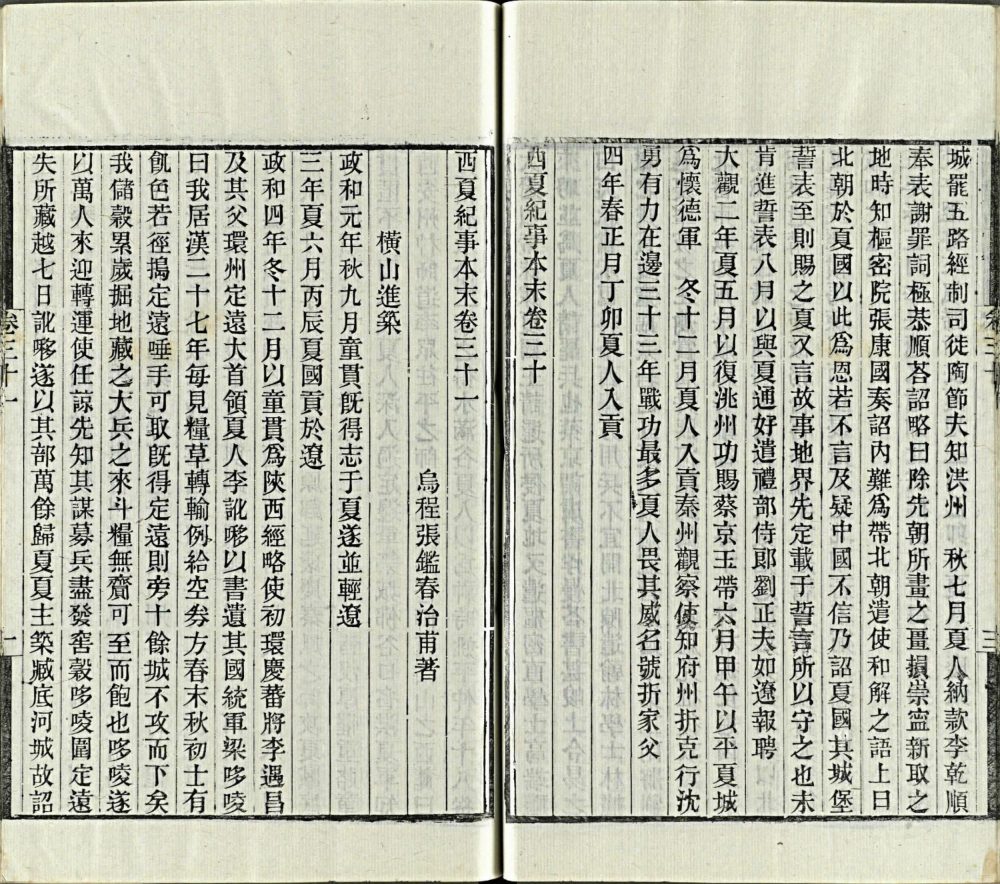 城罷五路經制司徒陶節夫知洪州　秋七月夏人納款李乾順
奉表謝罪詞極恭順荅詔略曰除先朝所畫之畺損崇寍新取之
地時知樞密院張康國奏詔內難爲帶北朝遣使和解之語上曰
北朝於夏國以此爲恩若不言及疑中國不信乃詔夏國其城堡
誓表至則賜之夏又言故事地界先定載于誓言所以守之也未
肯進誓表八月以與夏通好遣禮部侍郎劉正夫如遼報聘
大觀二年夏五月以復洮州功賜蔡京玉帶六月甲午以平夏城
爲懷德軍　冬十二月夏人入貢秦州觀察使知府州折克行沈
勇有力在邊三十三年戰功最多夏人畏其威名號折家父
四年春正月丁卯夏人入貢
西夏紀事本末卷三十
卷三十
三
西夏紀事本末卷三十一
烏程張鑑春治甫著
橫山進築
政和元年秋九月童貫旣得志于夏遂並輕遼
三年夏六月丙辰夏國貢於遼
政和四年冬十二月以童貫爲陝西經略使初環慶蕃將李遇昌
及其父環州定遠大首領夏人李訛㖼以書遺其國統軍梁哆㖫
曰我居漢二十七年每見糧草轉輸例給空劵方春末秋初士有
飢色若徑擣定遠唾手可取旣得定遠則旁十餘城不攻而下矣
我儲穀累歲掘地藏之大兵之來斗糧無齎可至而飽也哆㖫遂
以萬人來迎轉運使任諒先知其謀募兵盡發窖穀哆㖫圍定遠
失所藏越七日訛㖼遂以其部萬餘歸夏夏主築臧底河城故詔
卷三十一
一